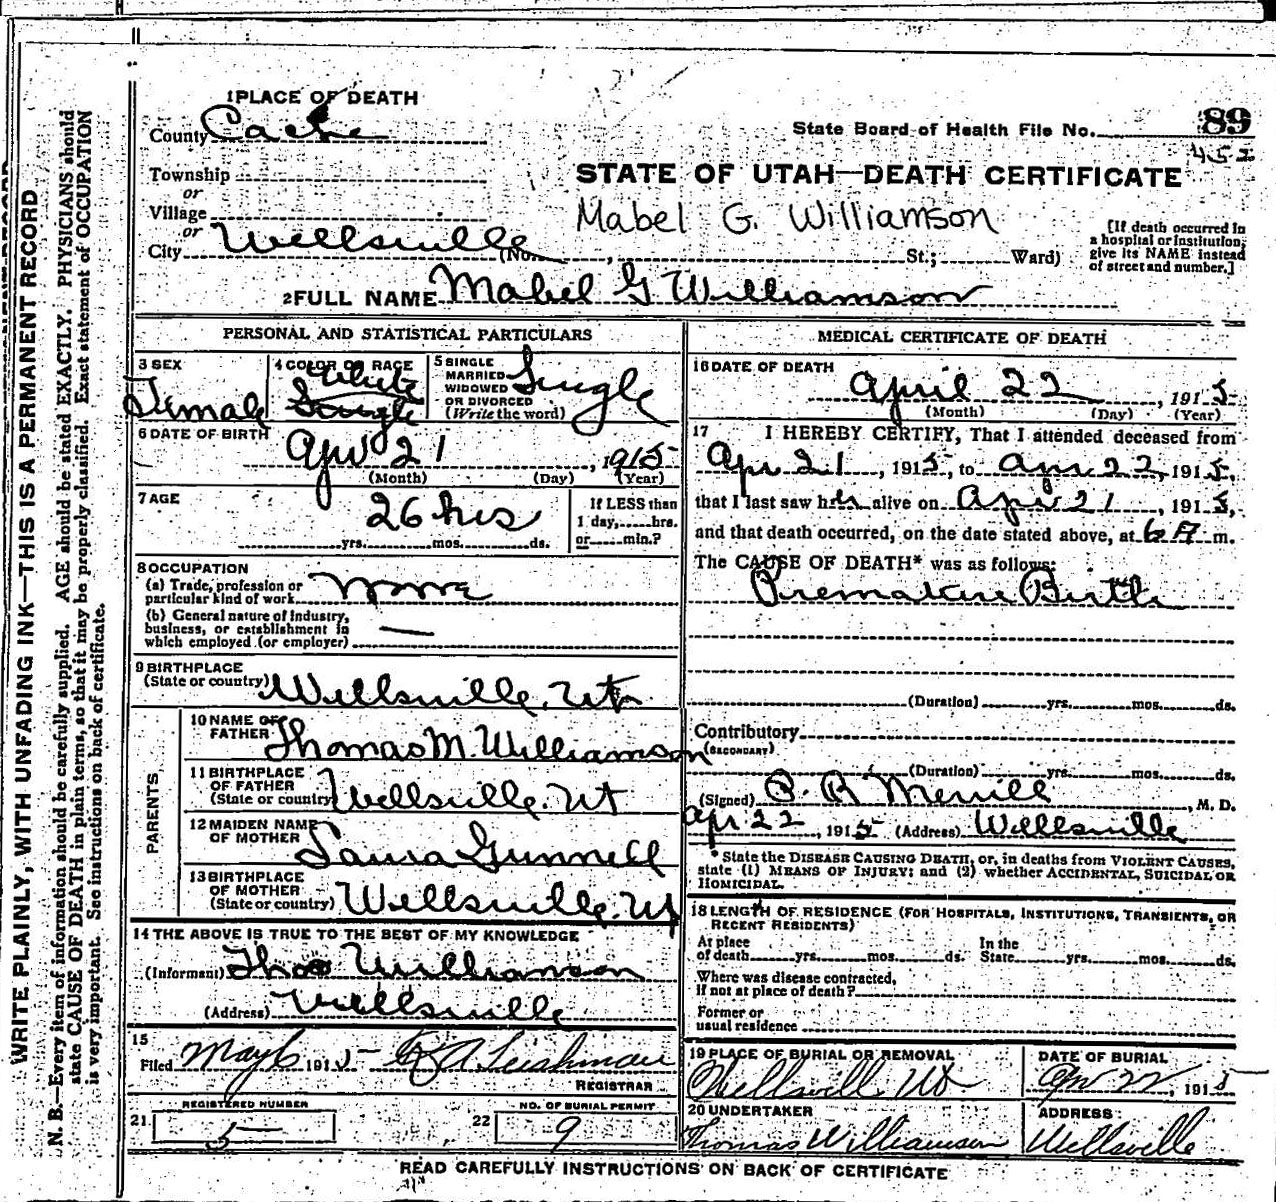 1 PLACE OF DEATH
County Cache
State Board of Health File No. 89
452
Township
or
Village
or
City Wellsville (No. , St.; Ward)
STATE OF UTAH—DEATH CERTIFICATE
Mabel G. Williamson
[If death occurred in
a hospital or institution,
give its NAME instead
of street and number.]
2 FULL NAME Mabel G Williamson
PERSONAL AND STATISTICAL PARTICULARS
3 SEX
Female
4 COLOR OR RACE
White
Single
5 SINGLE
MARRIED
WIDOWED
OR DIVORCED
(Write the word)
Single
6 DATE OF BIRTH
Apr 21, 1915
(Month) (Day) (Year)
7 AGE
26 hrs
yrs. mos. ds.
If LESS than
1 day, hrs.
or min.?
8 OCCUPATION
(a) Trade, profession or
particular kind of work None
(b) General nature of industry,
business, or establishment in
which employed (or employer)
9 BIRTHPLACE
(State or country) Wellsville, Ut
PARENTS
10 NAME OF
FATHER Thomas M. Williamson
11 BIRTHPLACE
OF FATHER
(State or country) Wellsville. Ut
12 MAIDEN NAME
OF MOTHER Laura Gunnell
13 BIRTHPLACE
OF MOTHER
(State or country) Wellsville. Ut
14 THE ABOVE IS TRUE TO THE BEST OF MY KNOWLEDGE
(Informant) Thos Williamson
(Address) Wellsville
15
Filed May 6 1915 A Leishman
REGISTRAR
21 REGISTERED NUMBER
5
22 NO. OF BURIAL PERMIT
9
MEDICAL CERTIFICATE OF DEATH
16 DATE OF DEATH
April 22, 1915
(Month) (Day) (Year)
17 I HEREBY CERTIFY, That I attended deceased from
Apr 21, 1915, to Apr 22, 1915,
that I last saw her alive on Apr 21, 1915,
and that death occurred, on the date stated above, at 6 A m.
The CAUSE OF DEATH* was as follows:
Premature Birth
(Duration) yrs. mos. ds.
Contributory
(SECONDARY)
(Duration) yrs. mos. ds.
(Signed) Merrill, M. D.
Apr 22, 1915 (Address) Wellsville
* State the DISEASE CAUSING DEATH, or, in deaths from VIOLENT CAUSES,
state (1) MEANS OF INJURY; and (2) whether ACCIDENTAL, SUICIDAL OR
HOMICIDAL.
18 LENGTH OF RESIDENCE (FOR HOSPITALS, INSTITUTIONS, TRANSIENTS, OR
RECENT RESIDENTS)
At place
of death yrs. mos. ds. In the
State yrs. mos. ds.
Where was disease contracted,
if not at place of death?
Former or
usual residence
19 PLACE OF BURIAL OR REMOVAL
Wellsvill Ut
DATE OF BURIAL
Apr 22, 1915
20 UNDERTAKER
Thomas Williamson
ADDRESS
Wellsville
READ CAREFULLY INSTRUCTIONS ON BACK OF CERTIFICATE
WRITE PLAINLY, WITH UNFADING INK—THIS IS A PERMANENT RECORD
N. B.—Every item of information should be carefully supplied. AGE should be stated EXACTLY. PHYSICIANS should
state CAUSE OF DEATH in plain terms, so that it may be properly classified. Exact statement of OCCUPATION
is very important. See instructions on back of certificate.